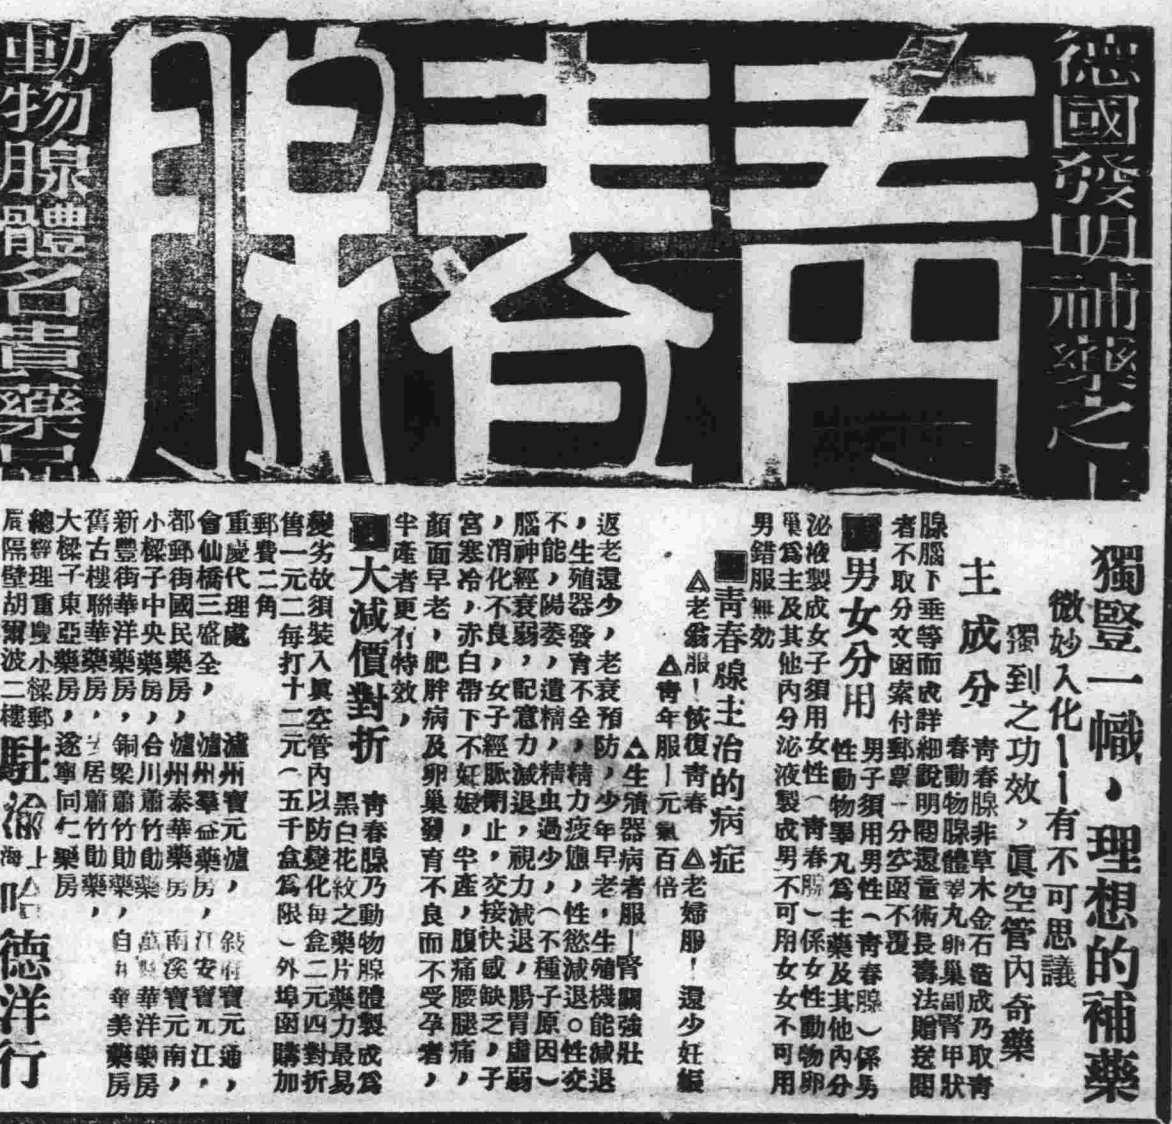 德國發明補藥之一
青春腺
動物腺體名貴藥品
獨豎一幟，理想的補藥
微妙入化——有不可思議
獨到之功效，眞空管內奇藥
主成分
青春腺非草木金石造成乃取青
春動物腺體睪丸卵巢副腎甲狀
腺腦下垂等而成詳細說明閱還童術長壽法贈送閱
者不取分文函索付郵票一分空函不覆
男女分用
男子須用男性（青春腺）係男
性動物睪丸爲主藥及其他內分
泌液製成女子須用女性（青春腺）係女性動物卵
巢爲主及其他內分泌液製成男不可用女女不可用
男錯服無効
青春腺主治的病症
△老翁服！恢復青春
△老婦服！還少妊娠
△青年服—元氣百倍
△生殖器病者服—腎關強壯
返老還少，老衰預防，少年早老，生殖機能減退
，生殖器發育不全，精力疲憊，性慾減退。性交
不能，陽萎，遺精，精虫過少，（不種子原因）
腦神經衰弱，記憶力減退，視力減退，腸胃虛弱
，消化不良，女子經脈閉止，交接快感缺乏，子
宮寒冷，赤白帶下不妊娠，半產，腹痛腰腿痛，
顏面早老，肥胖病及卵巢發育不良而不受孕者，
半產者更有特效，
大減價對折
青春腺乃動物腺體製成爲
黑白花紋之藥片藥力最易
變劣故須裝入眞空管內以防變化每盒二元四對折
售一元二每打十二元（五千盒爲限）外埠函購加
郵費二角
重慶代理處
瀘州寶元瀘，
敍府寶元通，
會仙橋三盛全，
瀘州羣益藥房，
江安寶元江，
都郵街國民藥房，
瀘州泰華藥房
南溪寶元南，
小樑子中央藥房，
合川蕭竹勛藥
萬縣華洋藥房
新豐街華洋藥房，
銅梁蕭竹勛藥，
自井華美藥房
舊古樓聯華藥房，
安居蕭竹勛藥，
大樑子東亞藥房，
遂寧同仁藥房
總經理重慶小樑郵
局隔壁胡爾波二樓
駐渝上海哈德洋行